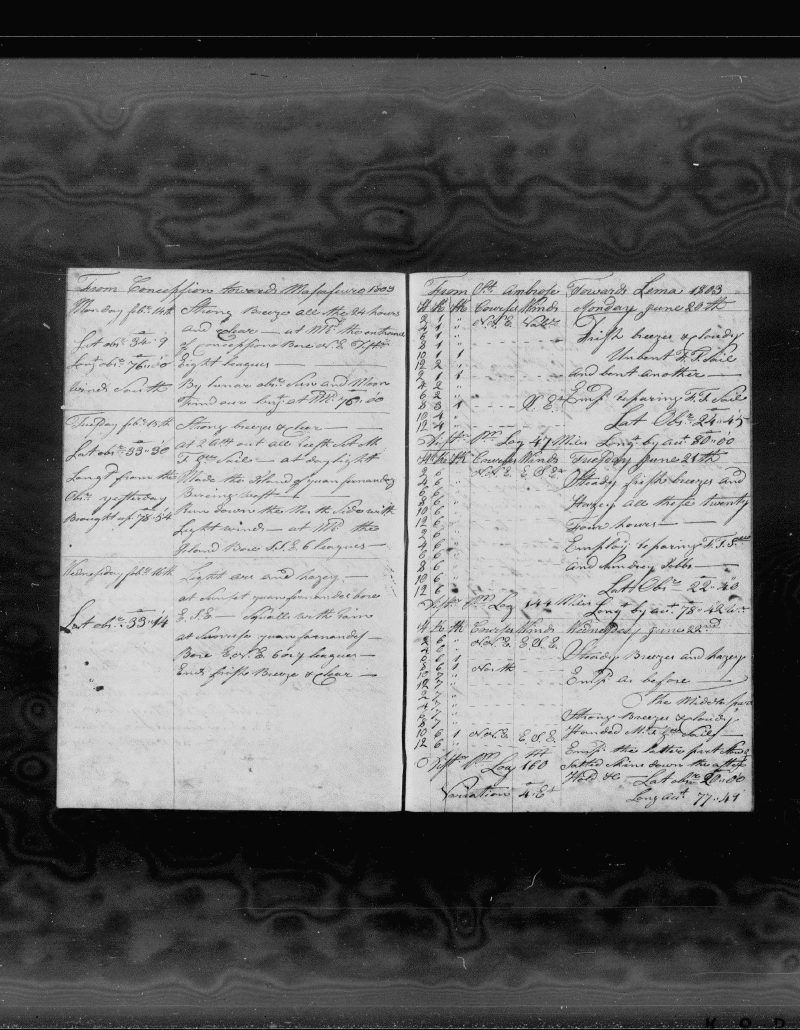 From Conception towards Masafuero 1803
Monday feb. 14th Strong Breeze all the 24 hours
and clear — at M. the entrance
Lat obs. 34..9 of conceptione Bore N.E. Dist
Long obs. 76..00 Eight leagues —
Winds South By lunar obs. Sun and Moon
found our long at M. 76..00
Tuesday feb. 15th Strong breeze & clear —
Lat obs. 33..30 at 2 A.M. out all reefs set the
T. Gn. Sails — at day light
Long from the Made the Island of yuanfernandez
Obs. yesterday Bearing west —
Brought up 78..54 run down the North Side with
Light winds — at M. the
Island Bore S.S.E. 6 leagues —
Wednesday feb. 16th Light airs and hazey —
at Sunset yuanfernandez bore
Lat obs. 33..44 E.S.E — Squalls with rain
at Sunrise yuanfernandez
Bore E.N.E. 6 or 7 leagues —
Ends fresh Breeze & clear —
From St. Ambrose Towards Lema 1803
H K th Courses Winds Monday June 20th
2 1 N.N.E.
4 1
6 1 Fresh breezes & cloudy
8 1
10 1 1 Unbent F.T. Sail
12 2
2 1 1 and bent another —
4 2
6 2 Emp. repairing F.T. Sail
8 3 1 S.E.
10 4 Lat Obs. 24..45
12 4
Dist. Pr. Log 47 Miles Long. by act. 80..00
H K th Courses Winds Tuesday June 21th
2 6 N.N.E. E.S.E.
4 6 Steady fresh breezes and
6 6
8 6 Hazey all these twenty
10 6
12 6 Four hours —
2 6
4 6 Employ. repairing F.T.S.
6 6
8 6 and Sundrey Jobbs —
10 6
12 6 Lat Obs. 22..40
Dist. Pr. Log 144 Miles Long. by act. 78..42
H K th Courses Winds Wednesday June 22nd
2 6 N.N.E. E.S.E.
4 6 Steady Breezes and hazey
6 6
8 6 1 North
10 7 Emp. as before —
12 7
2 7 the Middle part
4 7
6 7 Strong Breezes & cloudy
8 7
10 6 1 N.N.E. E.S.E. Handed M.T.Gn. Sail —
12 6
Emp. the latter part
Dist. Pr. Log 160 Salted Skins down the after
Hold &c — Lat obs. 20..00
Variation 4..E Long act. 77..49